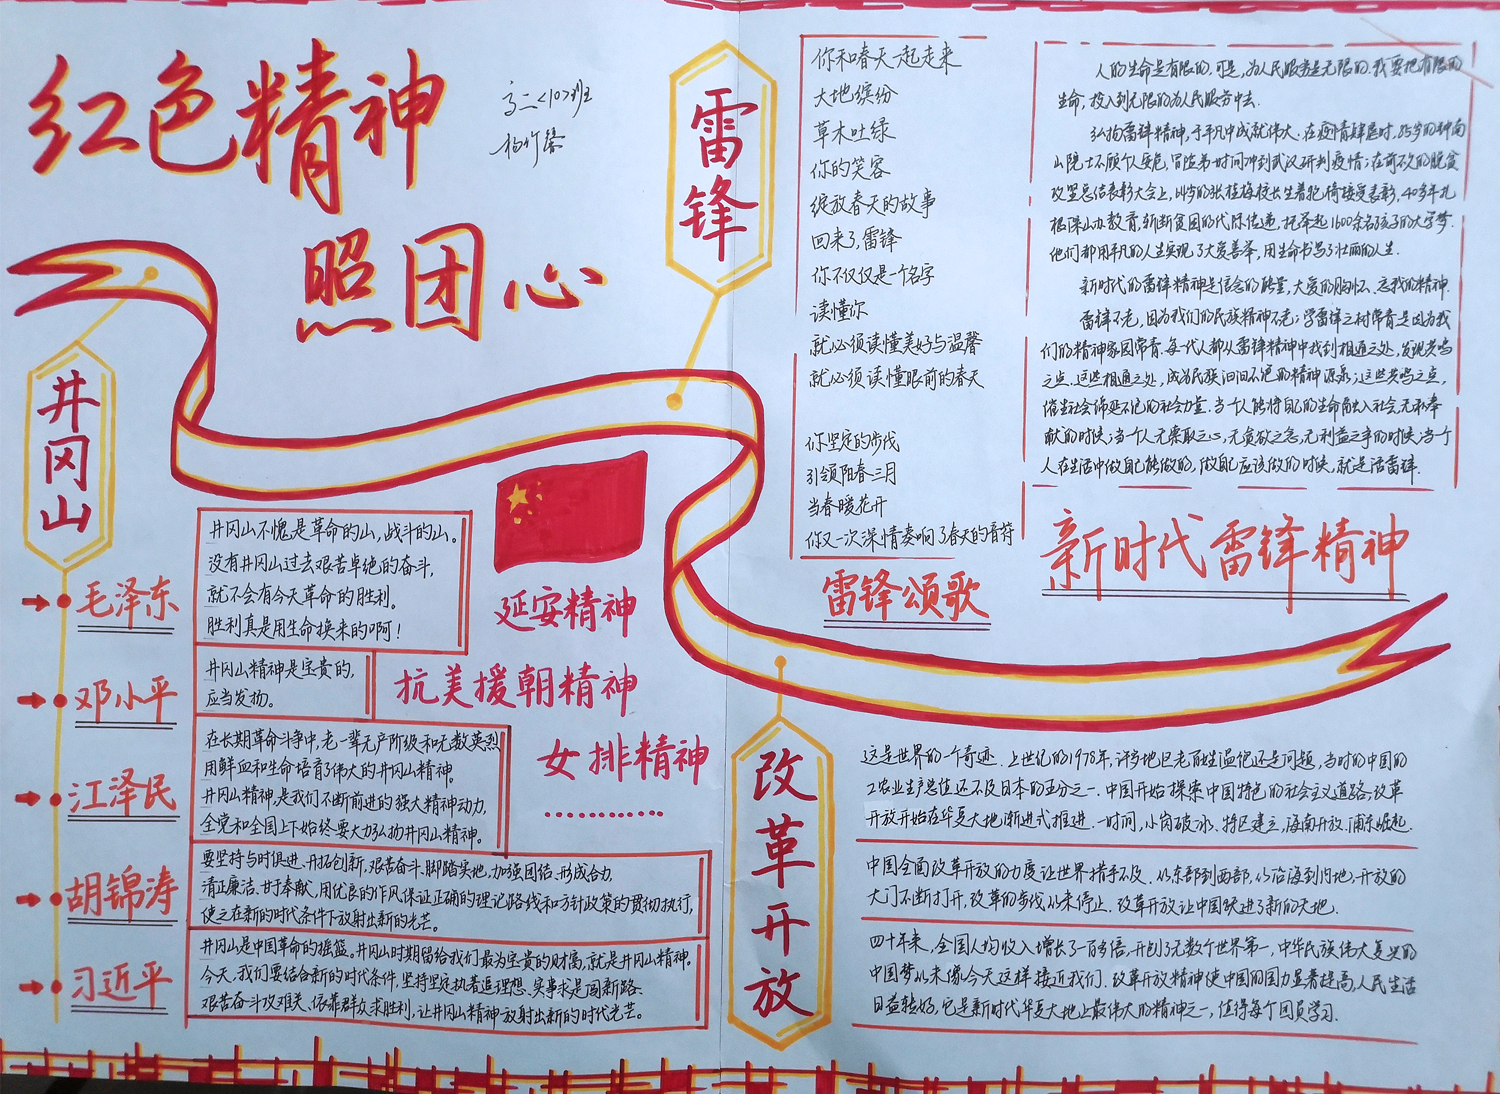 红色精神
照团心
高二<10>班
井冈山
毛泽东
井冈山不愧是革命的山,战斗的山。
没有井冈山过去艰苦卓绝的奋斗,
就不会有今天革命的胜利。
胜利真是用生命换来的啊!
邓小平
井冈山精神是宝贵的,
应当发扬。
江泽民
在长期革命斗争中,老一辈无产阶级和无数英烈
用鲜血和生命培育了伟大的井冈山精神。
井冈山精神,是我们不断前进的强大精神动力,
全党和全国上下始终要大力弘扬井冈山精神。
胡锦涛
要坚持与时俱进、开拓创新,艰苦奋斗、脚踏实地,加强团结、形成合力,
清正廉洁、甘于奉献,用优良的作风保证正确的理记路线和方针政策的贯彻执行,
使之在新的时代条件下放射出新的光芒。
习近平
井冈山是中国革命的摇篮。井冈山时期留给我们最为宝贵的财富,就是井冈山精神。
今天,我们要结合新的时代条件,坚持坚定执着追理想、实事求是闯新路、
艰苦奋斗攻难关、依靠群众求胜利,让井冈山精神放射出新的时代光芒。
延安精神
抗美援朝精神
女排精神
…………
雷锋
你和春天一起走来
大地缤纷
草木吐绿
你的笑容
绽放春天的故事
回来了,雷锋
你不仅仅是一个名字
读懂你
就必须读懂美好与温馨
就必须读懂眼前的春天
你坚定的步伐
引领阳春三月
当春暖花开
你又一次深情奏响了春天的音符
雷锋颂歌
人的生命是有限的,可是,为人民服务是无限的,我要把有限的
生命,投入到无限的为人民服务中去.
弘扬雷锋精神,于平凡中成就伟大.在疫情肆虐时,85岁的钟南
山院士不顾个人安危,冒险第一时间冲到武汉研判疫情;在前不久的脱贫
攻坚总结表彰大会上,64岁的张桂梅校长坐着轮椅接受表彰,40多年扎
根深山办教育,斩断贫困的代际传递,托举起1600余名孩子的大学梦.
他们都用平凡的人生实现了大爱善举,用生命书写了壮丽的人生.
新时代的雷锋精神是信念的能量,大爱的胸怀.忘我的精神.
雷锋不老,因为我们的民族精神不老;学雷锋之树常青是因为我
们的精神家园常青.每一代人都从雷锋精神中找到相通之处,发现共鸣
之点.这些相通之处,成为民族汩汩不绝的精神源泉;这些共鸣之点,
催生社会绵延不绝的社会力量.当一个人能将自己的生命融入社会,无私奉
献的时候;当一个人无索取之心,无贪欲之念,无利益之争的时候;当一个
人在生活中做自己能做的,做自己应该做的时候,就是活雷锋.
新时代雷锋精神
改革开放
这是世界的一个奇迹.上世纪的1978年,许多地区老百姓温饱还是问题,当时的中国的
工农业生产总值还不及日本的五分之一.中国开始探索中国特色的社会主义道路,改革
开放开始在华夏大地渐进式推进.一时间,小岗破冰、特区建立,海南开放、浦东崛起.
中国全面改革开放的力度让世界措手不及.从东部到西部,从沿海到内地,开放的
大门不断打开,改革的步伐从未停止.改革开放让中国跃进了新的天地.
四十年来,全国人均收入增长了一百多倍,开创了无数个世界第一,中华民族伟大复兴的
中国梦从未像今天这样接近我们.改革开放精神使中国的国力显著提高,人民生活
日益转好,它是新时代华夏大地上最伟大的精神之一,值得每个团员学习.